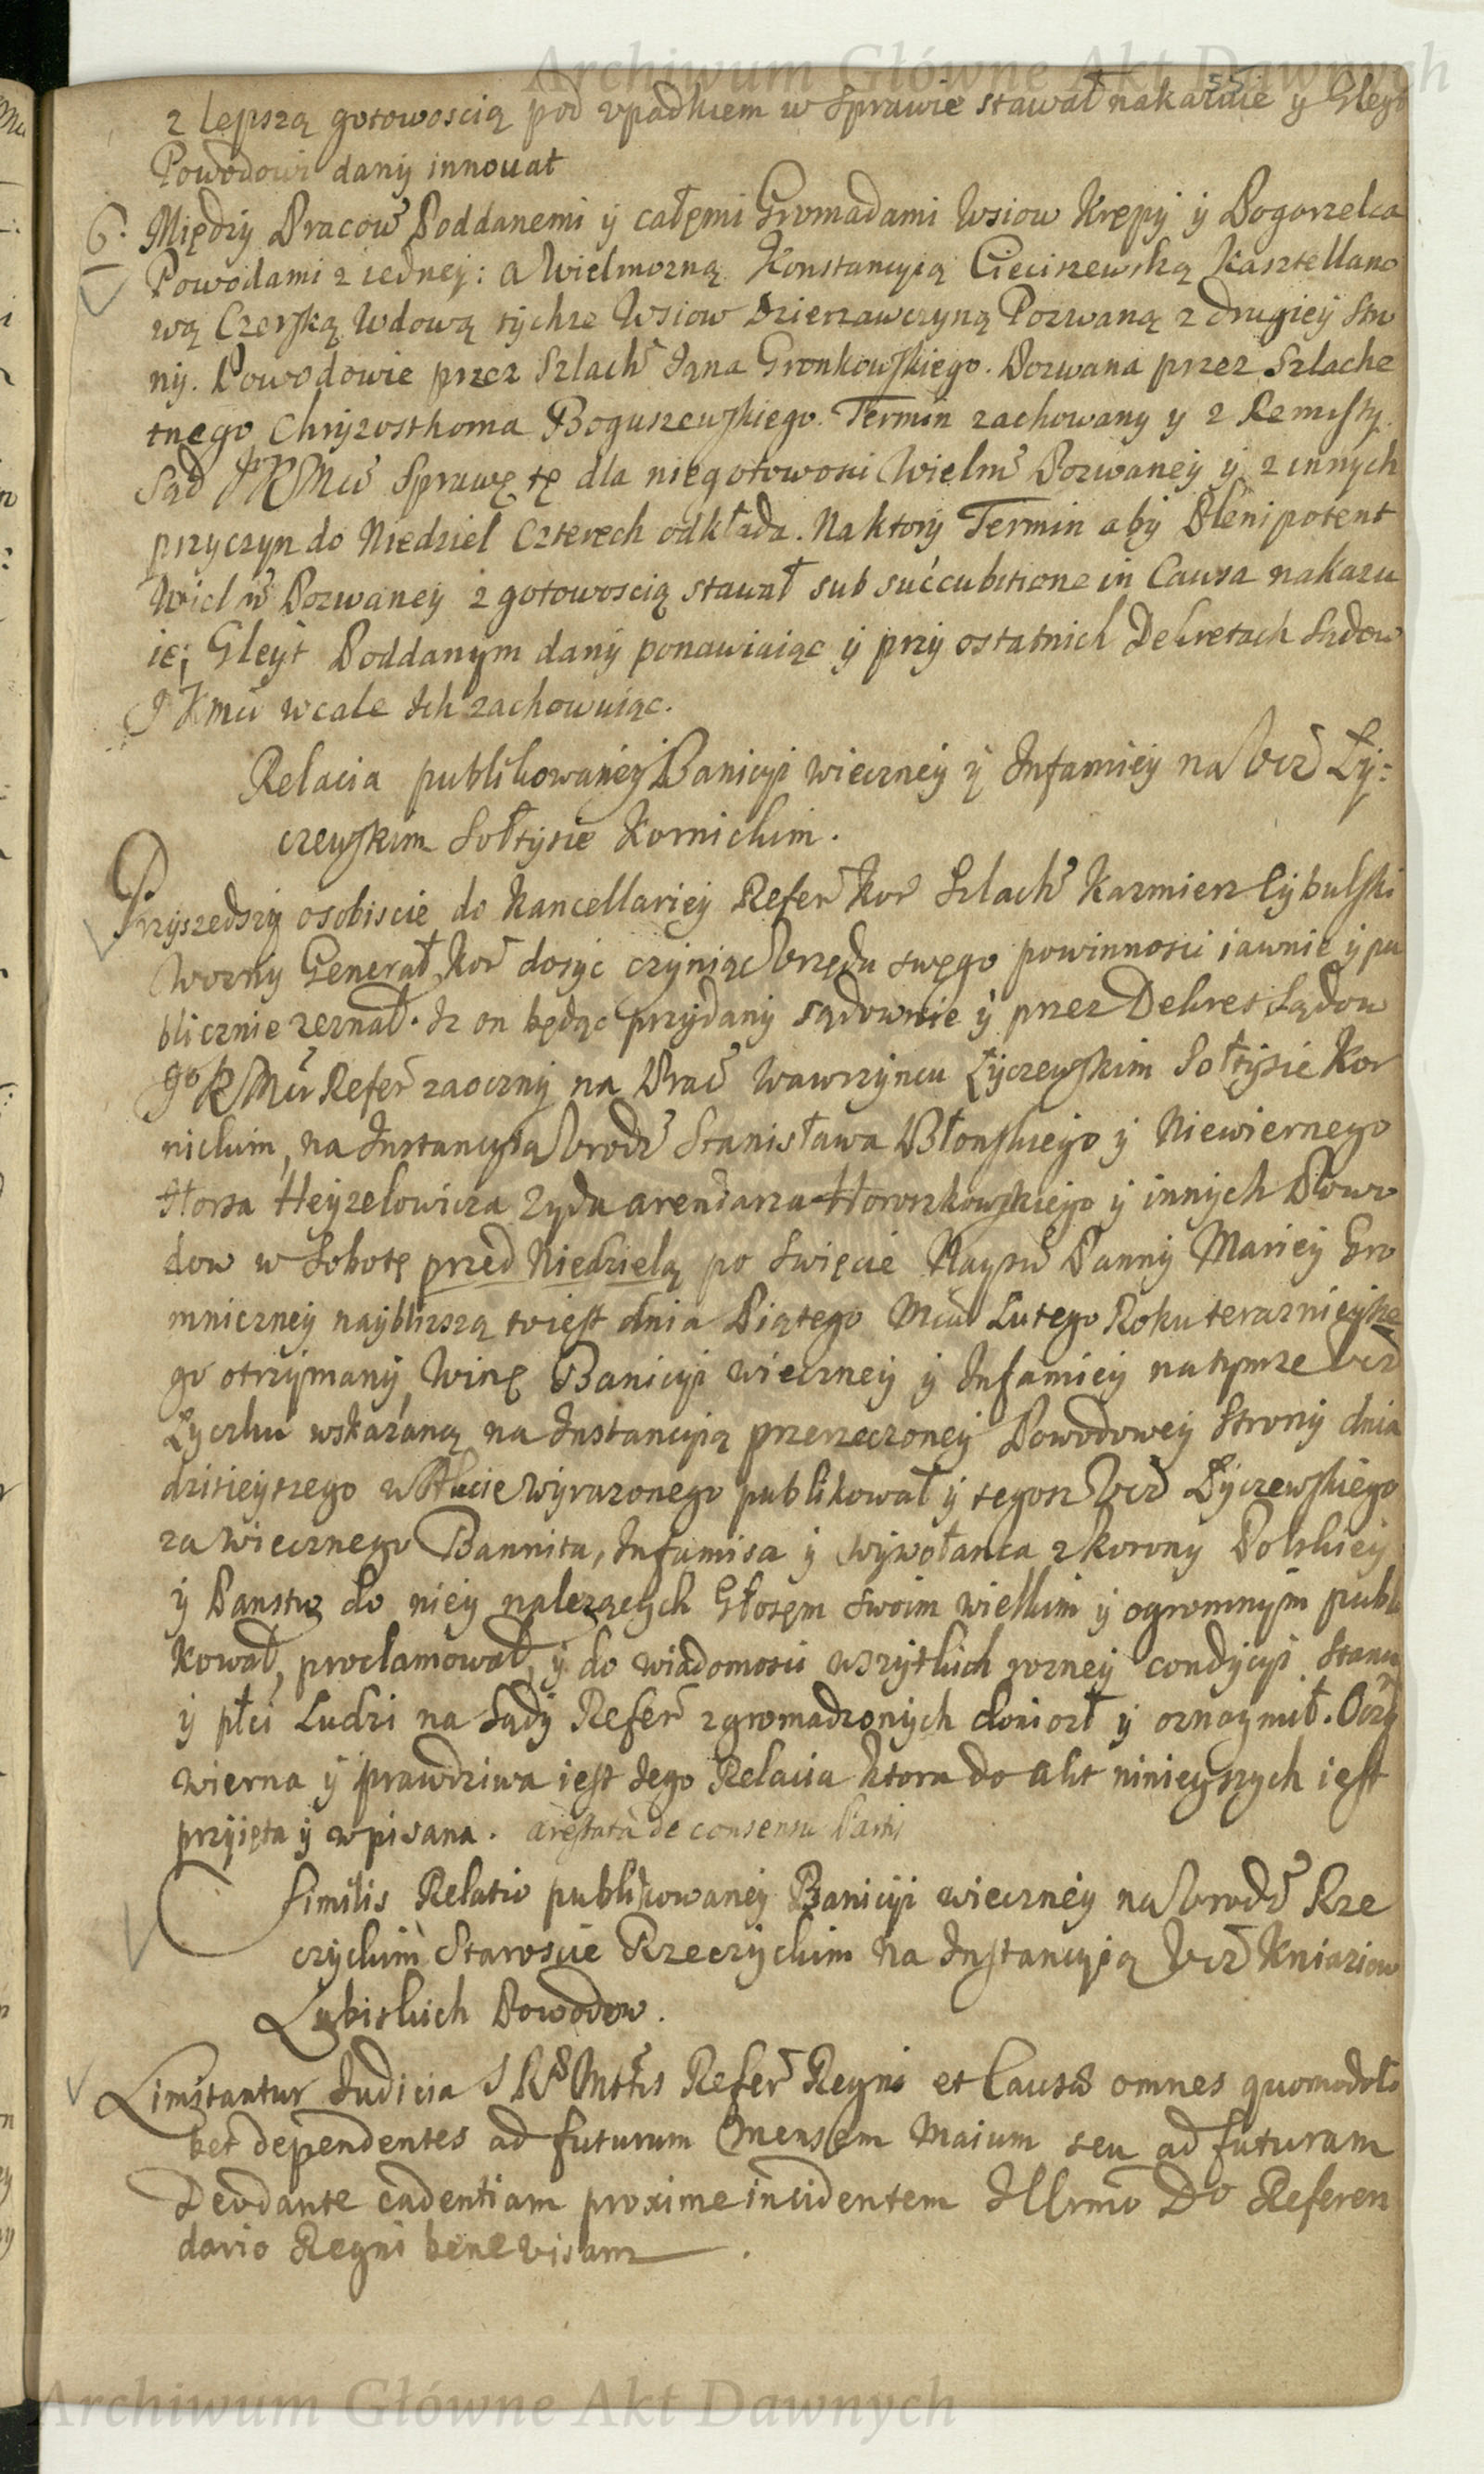 Archiwum Główne Akt Dawnych
55
z lepszą gotowoscią pod vpadkiem w sprawie stawał nakazuie y Gleyt
Powodowi dany innouat
6. Między Pracow Poddanemi y całęmi Gromadami Wsiow Krępy y Pogorzelca
Powodami z iedney: a Wielmozną Konstancyią Cieciszewską Kasztellano
wą Czerską Wdową tychze Wsiow Dzierzawczyną Pozwaną z drugiey Stro
ny. Powodowie przez Szlach Jana Gronkowskiego. Pozwana przez Szlache
tnego Chryzosthoma Boguszewskiego. Termin zachowany y z Remissy.
Sąd JKMci Sprawę tę dla niegotowosci Wielm Pozwaney y z innych
przyczyn do Niedziel Czterech odkłada. Na ktory Termin aby Plenipotent
Wielm Pozwaney z gotowoscią stawał sub succubitione in Causa nakazu
ie; Gleyt Poddanym dany ponawiaiąc y przy ostatnich Dekretach Sądow
JKmci wcale Ich zachowuiąc.
Relacia publikowaney Banicyi wieczney y Infamiey na Vcz Ły:
czewskim Sołtysie Kornickim.
Przyszedszy osobiscie do Kancellariey Refer Kor Szlach Kazmierz Cybulski
Wozny Generał Kor dosyc czyniąc Vrzędu swęgo powinnosci iawnie y pu
blicznie zeznał. Iz on będąc przydany sądownie y przez Dekret Sądow
JoKMci Refer zaoczny na Prac Wawrzyncu Łyczewskim Sołtysie Kor
nickim, na Instancyią Vrodz Stanisława Błonskiego y Niewiernego
Horsa Heyzelowicza Zyda arendarza Horoszkowskiego y innych Powo
dow w Sobotę przed Niedzielą po Swięcie Nayśw Panny Mariey Gro
mniczney naybliszszą to iest dnia Piątego Mca Lutego Roku terazniejsze
go otrzymany, Winę Banicyi wieczney y Infamiey na tymze Vcz
Łyczku wskazaną na Instancyią przerzeczoney Powodowey Strony dnia
dzisieyszego w Akcie wyrazonego publikował y tegosz Vcz Łyczewskiego
za wiecznego Bannita, Infamisa y wywołanca z Korony Polskiey
y Panstw do niey nalezących Głosęm swoim wielkim y ogromnym publi
kował, proclamował, y do wiadomosci wszytkich rozney condycyi Stanu
y płci Ludzi na Sądy Refer zgromadzonych doniosł y oznaymił. O czy
wierna y prawdziwa iest Jego Relacia ktora do akt ninieyszych iest
przyięta y wpisana. arestata de consensu Parti
Similis Relatio publikowaney Banicyi wieczney na Vrodz Rze
czyckim Staroscie Rzeczyckim na Instancyią Vcz Kniaziow
Lubiskich Powodow.
Limitantur Judicia S R Mttis Refer Regni et Causas omnes quomodoli
bet dependentes ad futurum Mensem Maium seu ad futuram
Deodante cadentiam proxime incidentem Illrmo Do Referen
dario Regni bene visam.
Archiwum Główne Akt Dawnych